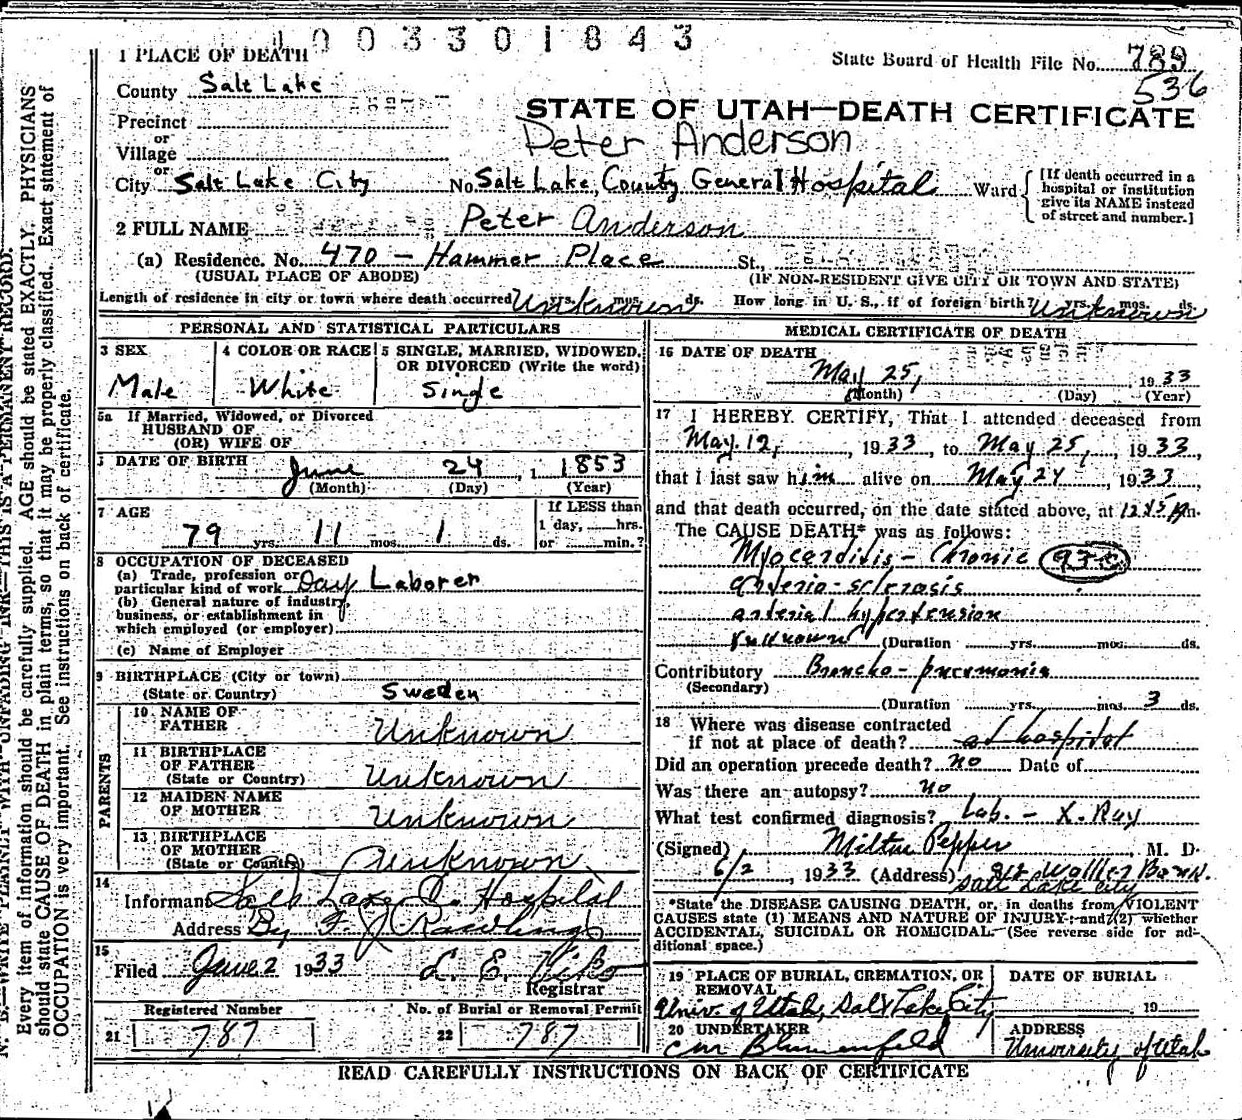 1003301843
1 PLACE OF DEATH
State Board of Health File No. 789
536
County Salt Lake
STATE OF UTAH—DEATH CERTIFICATE
Precinct
or
Village
Peter Anderson
or
City Salt Lake City No. Salt Lake, County General Hospital Ward
[If death occurred in a
hospital or institution
give its NAME instead
of street and number.]
2 FULL NAME Peter Anderson
(a) Residence. No. 470 - Hammer Place St.,
(USUAL PLACE OF ABODE) (IF NON-RESIDENT GIVE CITY OR TOWN AND STATE)
Length of residence in city or town where death occurred Unknown yrs. mos. ds. How long in U. S., if of foreign birth? Unknown yrs. mos. ds.
PERSONAL AND STATISTICAL PARTICULARS
3 SEX
Male
4 COLOR OR RACE
White
5 SINGLE, MARRIED, WIDOWED,
OR DIVORCED (Write the word)
Single
5a If Married, Widowed, or Divorced
HUSBAND OF
(OR) WIFE OF
DATE OF BIRTH June 24, 1853
(Month) (Day) (Year)
7 AGE
79 yrs. 11 mos. 1 ds.
If LESS than
1 day, hrs.
or min.?
8 OCCUPATION OF DECEASED
(a) Trade, profession or
particular kind of work Day Laborer
(b) General nature of industry,
business, or establishment in
which employed (or employer)
(c) Name of Employer
9 BIRTHPLACE (City or town)
(State or Country) Sweden
PARENTS
10 NAME OF
FATHER Unknown
11 BIRTHPLACE
OF FATHER
(State or Country) Unknown
12 MAIDEN NAME
OF MOTHER Unknown
13 BIRTHPLACE
OF MOTHER
(State or Country) Unknown
14
Informant Salt Lake C. Hospital
Address By F. J. Rawlings
15
Filed June 2 1933 L. E. Viko
Registrar
Registered Number No. of Burial or Removal Permit
21 787 22 787
MEDICAL CERTIFICATE OF DEATH
16 DATE OF DEATH
May 25, 1933
(Month) (Day) (Year)
17 I HEREBY CERTIFY, That I attended deceased from
May 12, 1933, to May 25, 1933,
that I last saw him alive on May 24, 1933,
and that death occurred, on the date stated above, at m.
The CAUSE DEATH* was as follows:
Myocarditis - Chronic 93-c
arterio-sclerosis
arterial hypertension
unknown (Duration yrs. mos. ds.
Contributory Broncho-pneumonia
(Secondary)
(Duration yrs. mos. 3 ds.
18 Where was disease contracted
if not at place of death? at hospital
Did an operation precede death? no Date of
Was there an autopsy? no
What test confirmed diagnosis? Lab. - X. Ray
(Signed) Milton Pepper, M. D.
6/2, 1933 (Address)
Salt Lake City
*State the DISEASE CAUSING DEATH, or, in deaths from VIOLENT
CAUSES state (1) MEANS AND NATURE OF INJURY; and (2) whether
ACCIDENTAL, SUICIDAL OR HOMICIDAL. (See reverse side for ad-
ditional space.)
19 PLACE OF BURIAL, CREMATION, OR
REMOVAL
Univ. of Utah, Salt Lake City
DATE OF BURIAL
19
20 UNDERTAKER
C M Blumenfeld
ADDRESS
University of Utah
READ CAREFULLY INSTRUCTIONS ON BACK OF CERTIFICATE
N. B.—WRITE PLAINLY WITH UNFADING INK—THIS IS A PERMANENT RECORD.
Every item of information should be carefully supplied. AGE should be stated EXACTLY. PHYSICIANS
should state CAUSE OF DEATH in plain terms, so that it may be properly classified. Exact statement of
OCCUPATION is very important. See instructions on back of certificate.